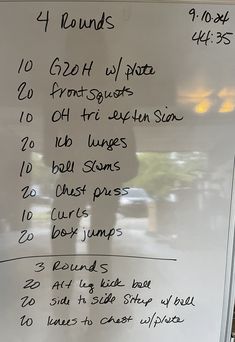 4 Rounds
9.10.24
44:35
10 G2OH w/ plate
20 front squats
10 OH tri extension
20 kb lunges
10 ball slams
20 chest press
10 curls
20 box jumps
3 Rounds
20 Alt leg kick ball
20 side to side situp w/ ball
20 knees to chest w/ plate